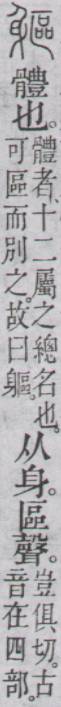 軀
體也。體者、十二屬之總名也。可區而別之。故曰軀。从身。區聲。豈俱切。古音在四部。